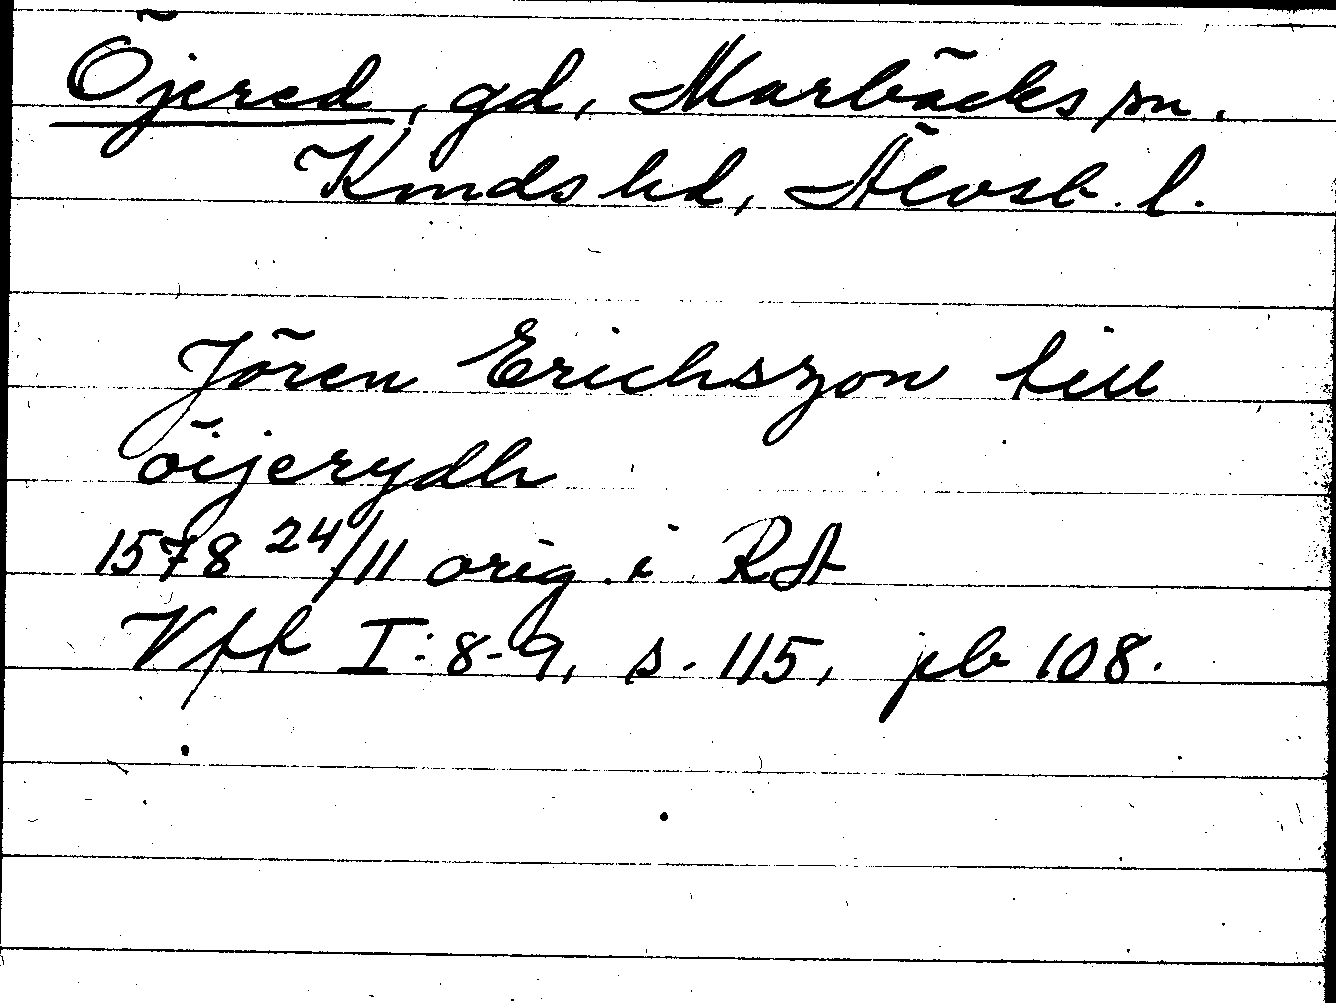 Öjered, gd, Marbäcks sn.
Kinds hd, Älvsb. l.
Jören Erichszon till
öijerydh
1578 24/11 orig. i RA
Vff I:8-9, s. 115, pb 108.